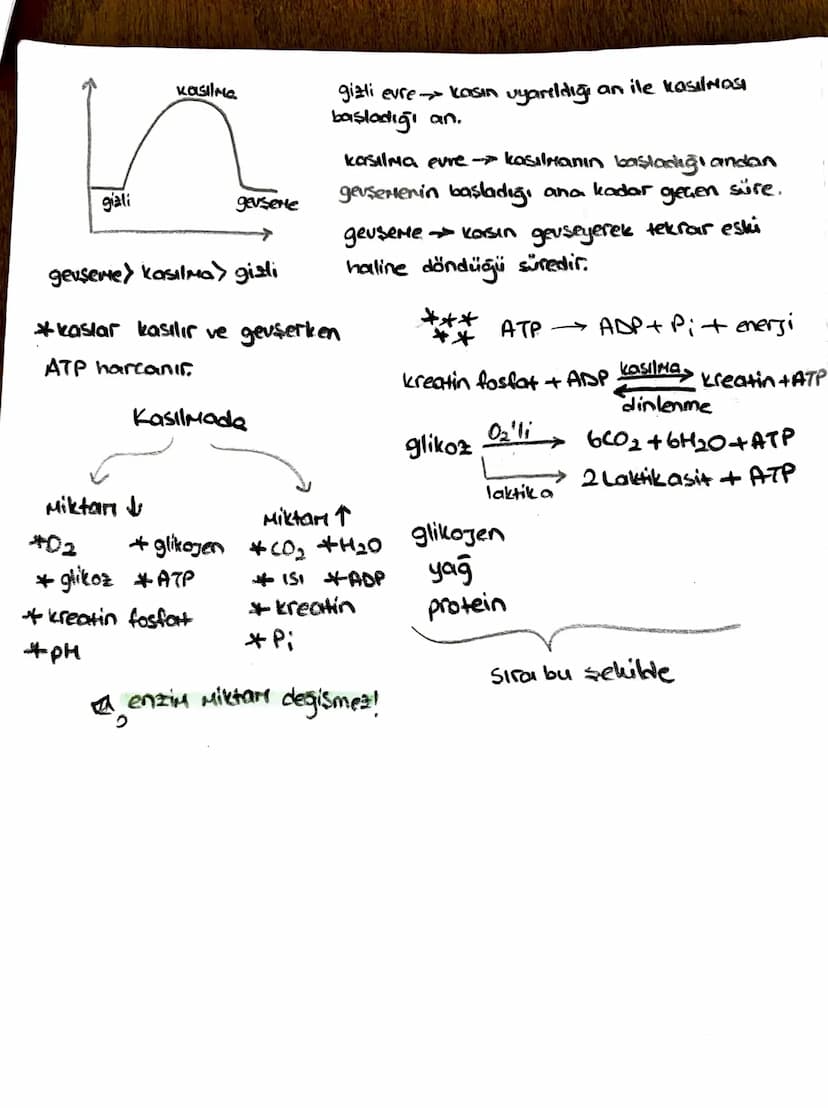 kasılma
gizli
gevşeme
gevşeme > kasılma > gizli
gizli evre → kasın uyarıldığı an ile kasılması
başladığı an.
kasılma evre → kasılmanın başladığı andan
gevşemenin başladığı ana kadar geçen süre.
gevşeme → kasın gevşeyerek tekrar eski
haline döndüğü süredir.
*kaslar kasılır ve gevşerken
ATP harcanır.
Kasılmada
Miktarı ↓
*O₂ *glikojen
*glikoz *ATP
*kreatin fosfat
*pH
Miktarı ↑
*CO₂ *H₂O
*ısı *ADP
*kreatin
*Pi
enzim miktarı değişmez!
***** ATP → ADP + Pi + enerji
kreatin fosfat + ADP kasılma ⇄ dinlenme kreatin + ATP
glikoz O₂'li → 6CO₂ + 6H₂O + ATP
laktik a → 2 Laktik asit + ATP
glikojen
yağ
protein
sıra bu şekilde